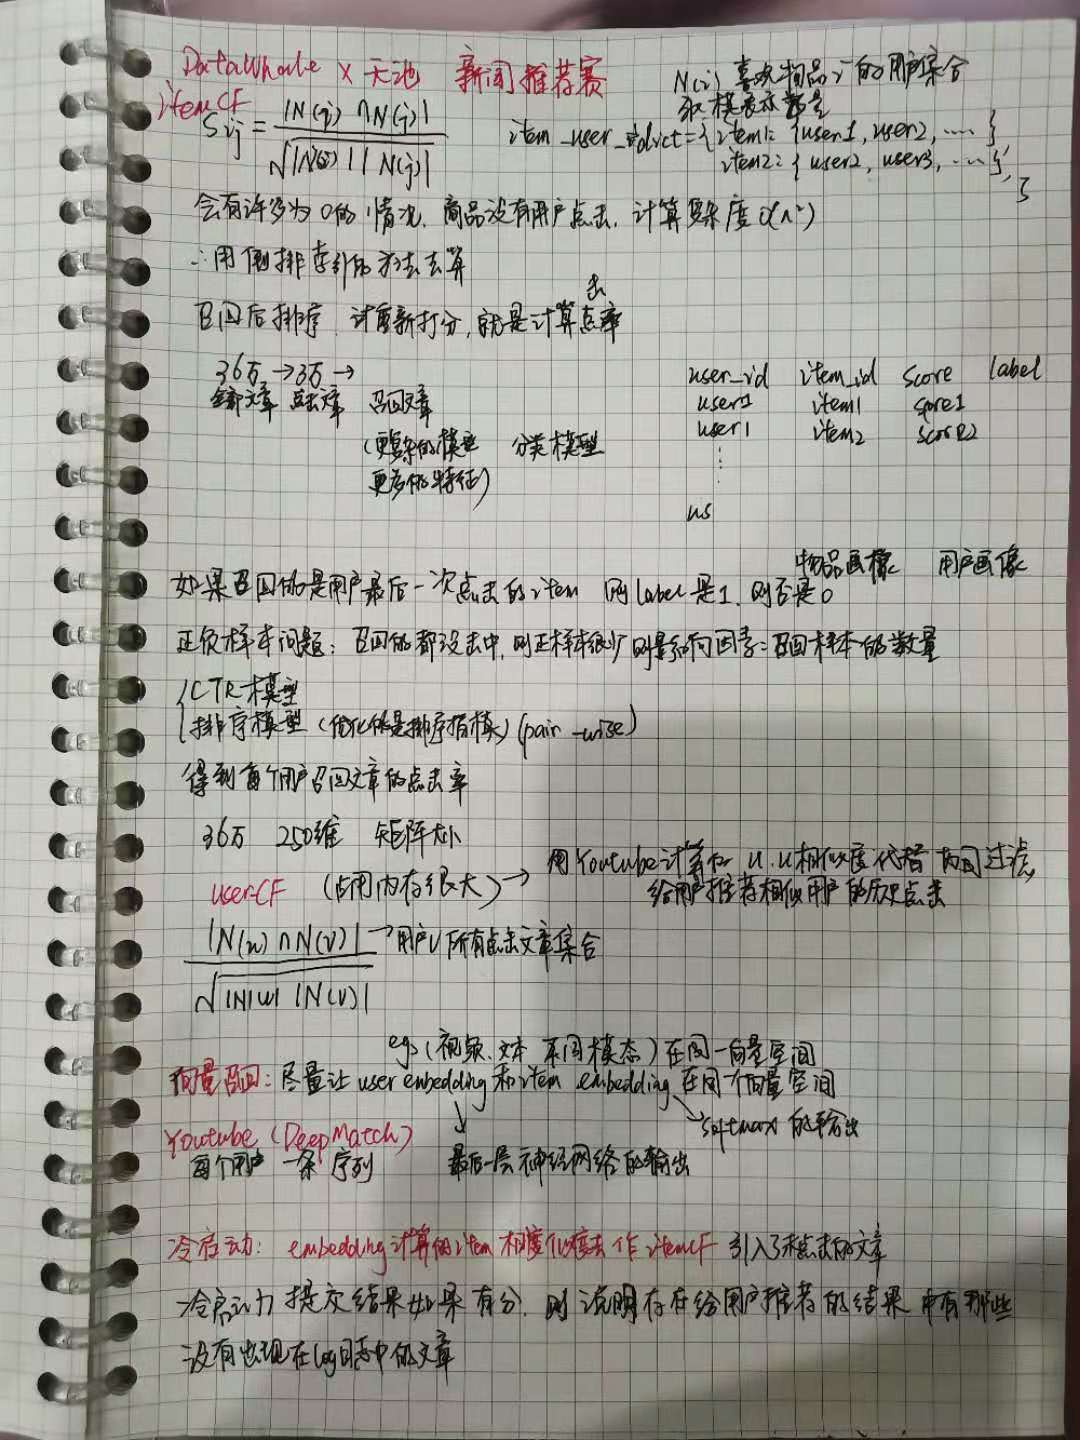 DataWhale x 天池 新闻推荐赛
N(i) 喜欢物品 i 的用户集合
取模表示数量
itemCF
Sij = |N(i) ∩ N(j)| / √|N(i)| |N(j)|
item_user_dict = { item1: {user1, user2, ...... }
item2: { user2, user3, ... },
}
会有许多为0的情况, 商品没有用户点击, 计算复杂度 O(n²)
∴ 用倒排索引的方法去算
召回后排序, 计重新打分, 就是计算点击率
36万 → 3万 →
全部文章 点击文章 召回文章
(更复杂的模型 分类模型
更多的特征)
user_id item_id score label
user1 item1 score1
user1 item2 score2
⋮
us
物品画像 用户画像
如果召回的是用户最后一次点击的item 则label是1, 则否是0
正负样本问题: 召回的都没击中, 则正样本很少 影响因素: 召回样本的数量
{ CTR模型
排序模型 (优化的是排序指模) (pair-wise)
得到每个用户召回文章的点击率
36万 250维 矩阵大小
user-CF (占用内存很大) → 用Youtube计算的 u.u相似度代替 协同过滤,
给用户推荐相似用户的历史点击
|N(u) ∩ N(v)| / √|N(u)| |N(v)| → 用户v所有点击文章集合
eg: (视频、文本 不同模态) 在同一向量空间
向量召回: 尽量让 user embedding 和 item embedding 在同个向量空间
↓ ↘ softmax 的输出
Youtube (DeepMatch)
每个用户 一条 序列 最后一层神经网络的输出
冷启动: embedding计算的item相度似度去作itemCF 引入了未点击的文章
冷启动 提交结果如果有分, 则说明存在给用户推荐的结果中有那些
没有出现在log日志中的文章